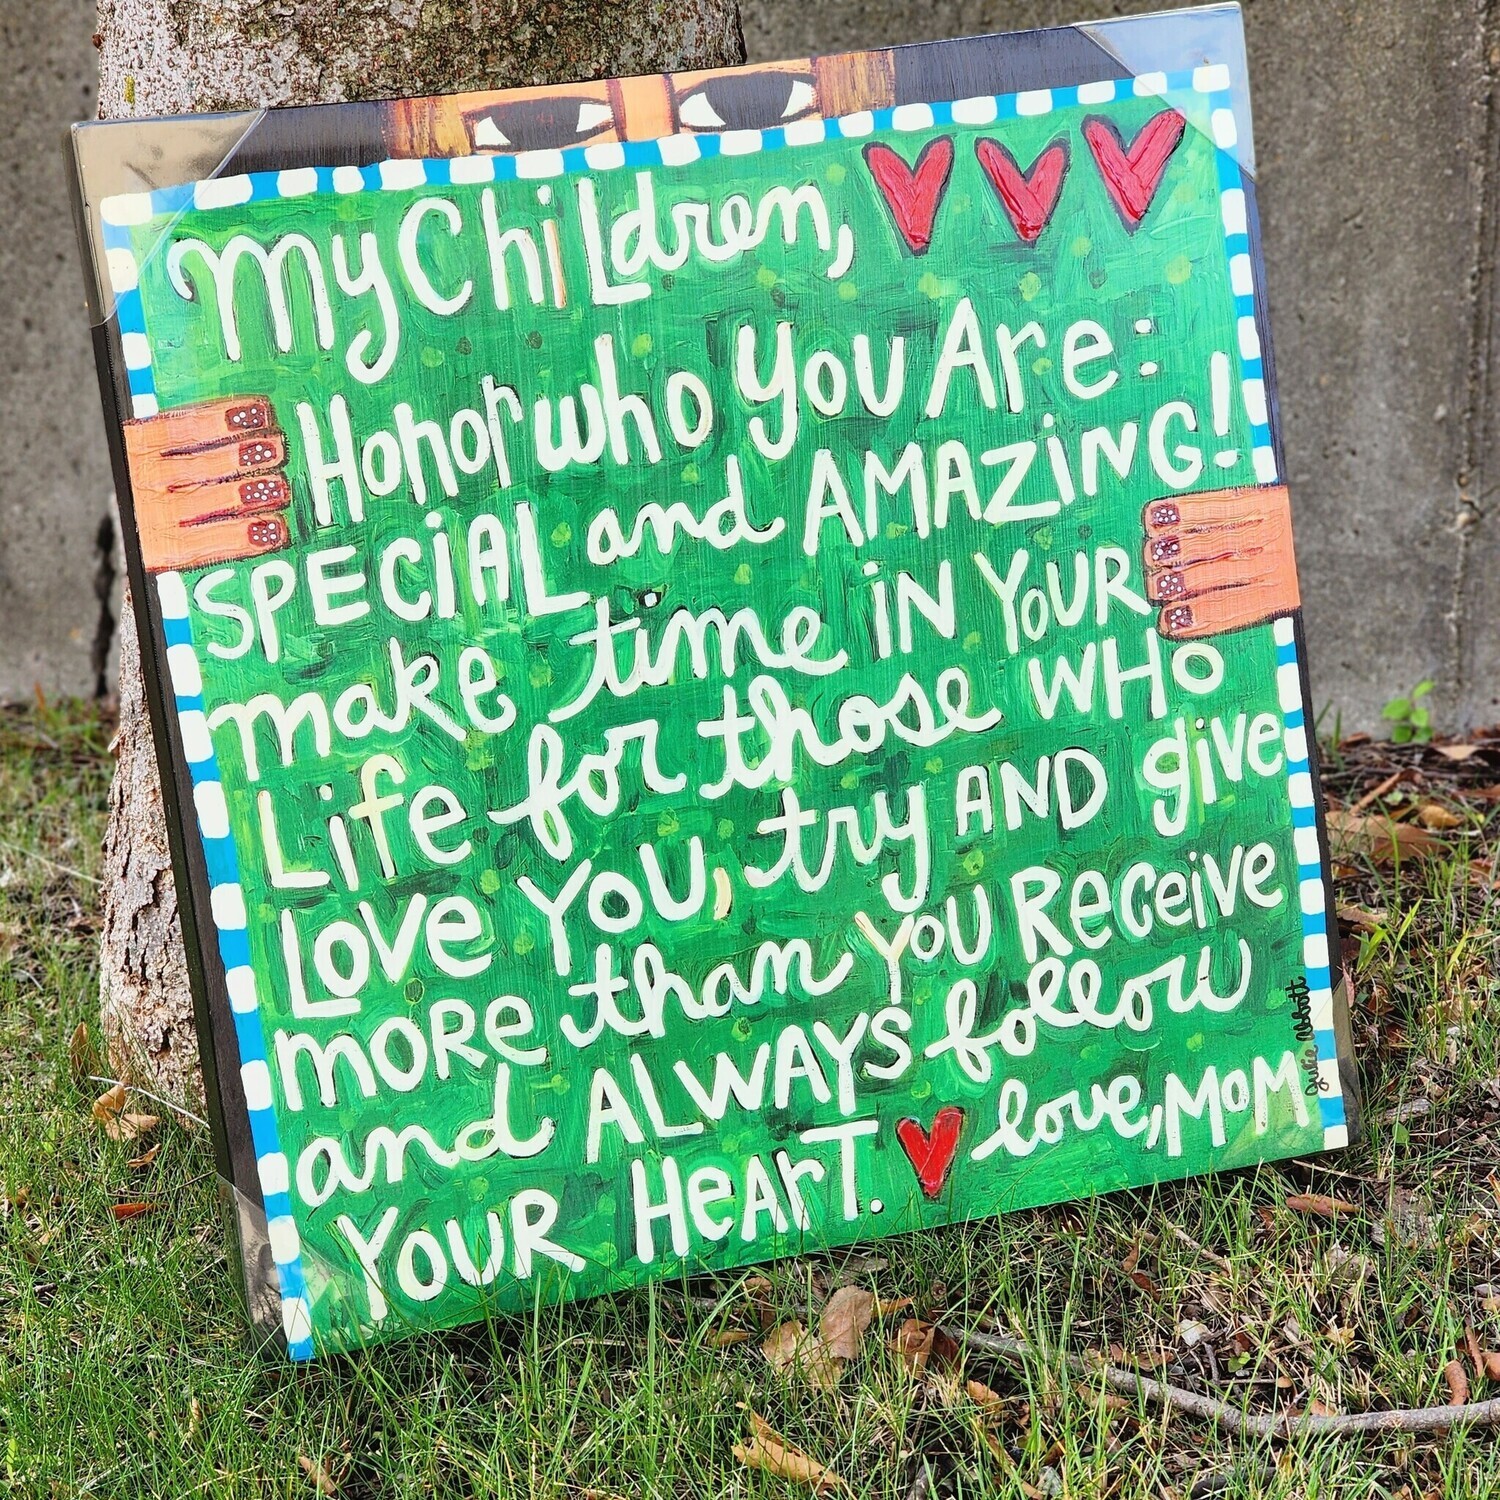 My Children,
Honor who you Are:
SPECIAL and AMAZING!
make time in your
Life for those WHO
Love You, try AND give
more than you Receive
and ALWAYS follow
Your HeArT. love, MoM
Julie Abbott